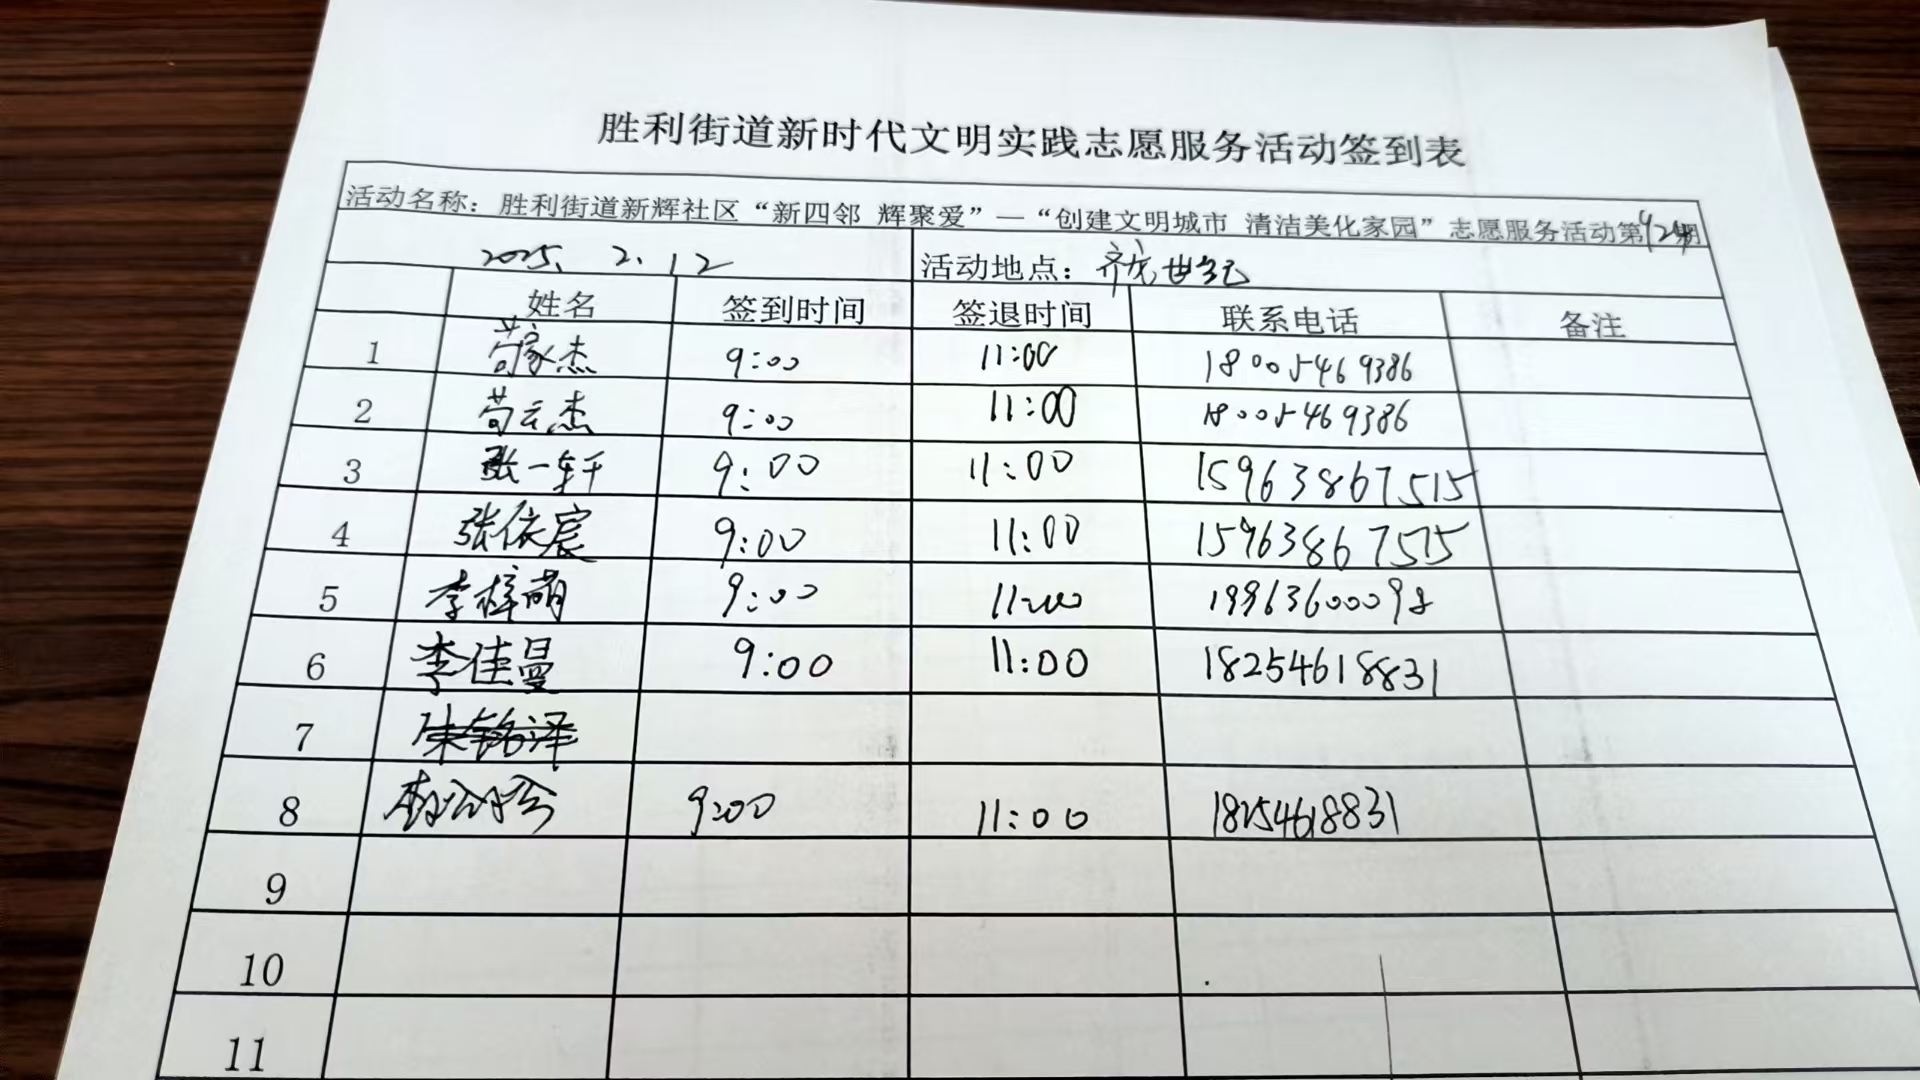 胜利街道新时代文明实践志愿服务活动签到表
活动名称：胜利街道新辉社区“新四邻 辉聚爱”—“创建文明城市 清洁美化家园”志愿服务活动第 期
2025. 2. 12 活动地点：齐龙世纪
姓名 签到时间 签退时间 联系电话 备注
1 苟家杰 9:00 11:00 18005469386
2 苟云杰 9:00 11:00 18005469386
3 张一轩 9:00 11:00 15963867515
4 张依宸 9:00 11:00 15963867515
5 李梓萌 9:00 11:00 19963600098
6 李佳曼 9:00 11:00 18254618831
7 朱铭泽
8 9:00 11:00 18254618831
9
10
11